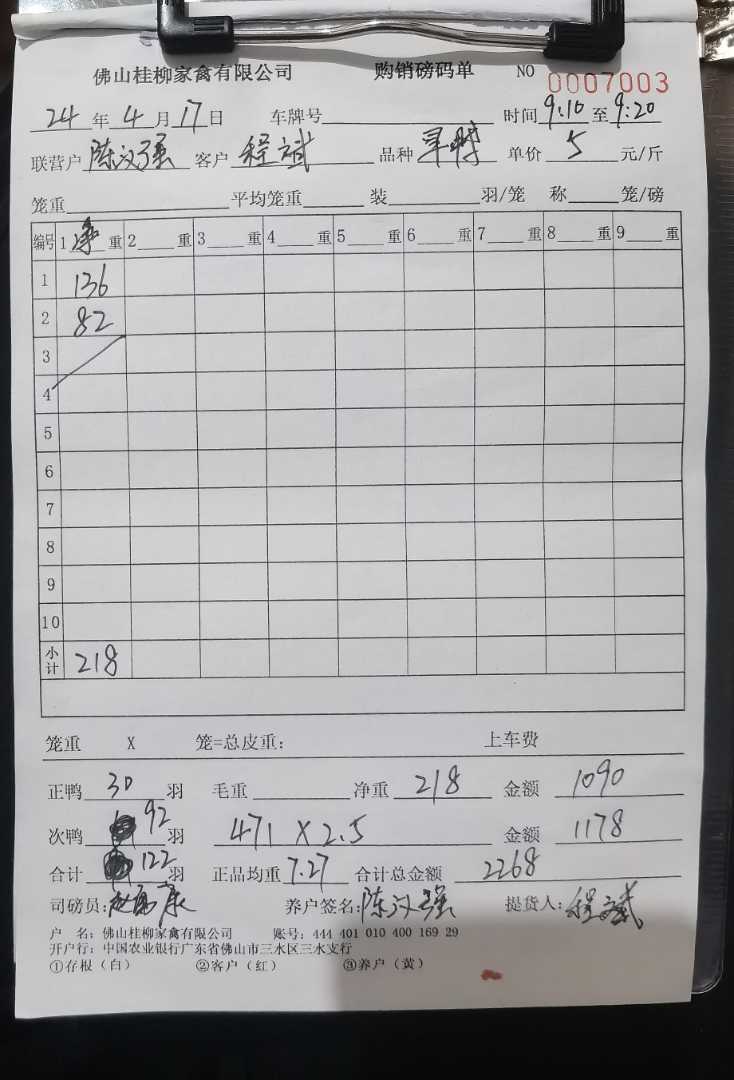 佛山桂柳家禽有限公司 购销磅码单 NO 0007003
24年4月17日 车牌号 时间9:10至9:20
联营户陈汉强 客户程斌 品种 单价5元/斤
笼重 平均笼重 装 羽/笼 称 笼/磅
编号 1净重 2 重 3 重 4 重 5 重 6 重 7 重 8 重 9 重
1 136
2 82
3
4
5
6
7
8
9
10
小计 218
笼重 X 笼=总皮重: 上车费
正鸭30羽 毛重 净重218 金额1090
次鸭92羽 471 X 2.5 金额1178
合计122羽 正品均重7.27 合计总金额2268
司磅员: 养户签名:陈汉强 提货人:程斌
户 名:佛山桂柳家禽有限公司 账号:444 401 010 400 169 29
开户行:中国农业银行广东省佛山市三水区三水支行
①存根(白) ②客户(红) ③养户(黄)